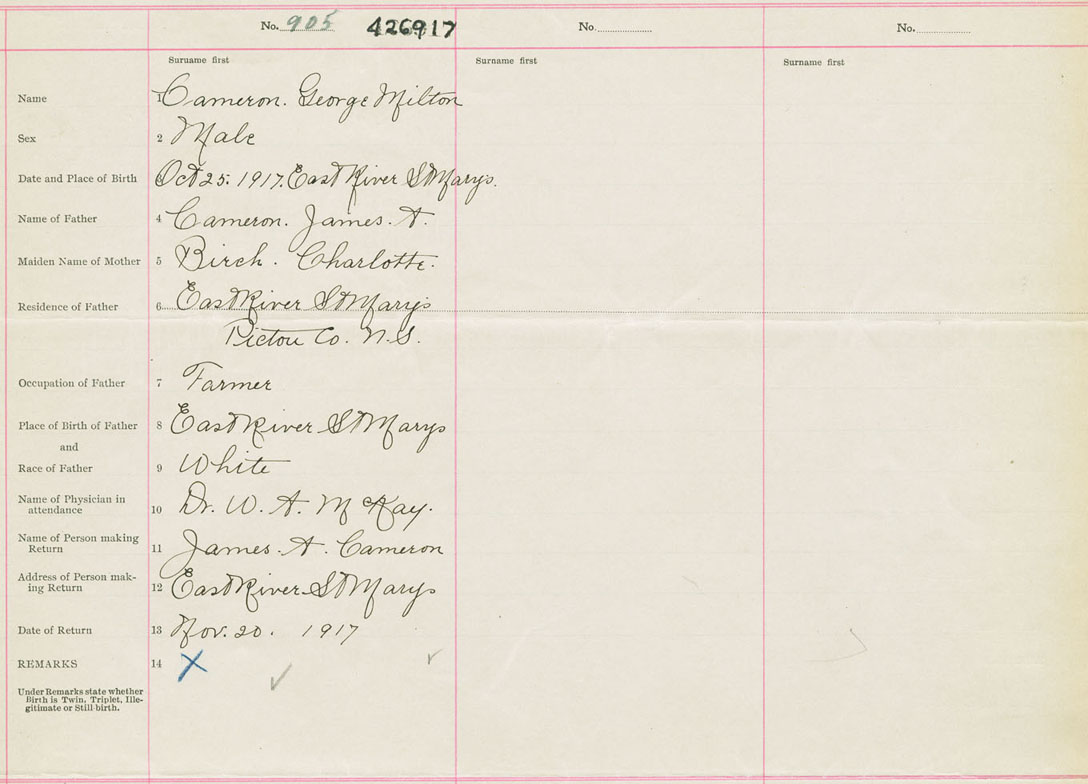 No. 905 426917 No. No.
Surname first Surname first Surname first
Name 1 Cameron. George Milton
Sex 2 Male
Date and Place of Birth 3 Oct 25. 1917. East River St Marys.
Name of Father 4 Cameron. James. A.
Maiden Name of Mother 5 Birch. Charlotte.
Residence of Father 6 East River St Marys
Pictou Co. N.S.
Occupation of Father 7 Farmer
Place of Birth of Father 8 East River St Marys
and
Race of Father 9 White
Name of Physician in
attendance 10 Dr. W. A. McKay.
Name of Person making
Return 11 James. A. Cameron
Address of Person mak-
ing Return 12 East River St Marys
Date of Return 13 Nov. 20. 1917
REMARKS 14
Under Remarks state whether
Birth is Twin, Triplet, Ille-
gitimate or Still-birth.